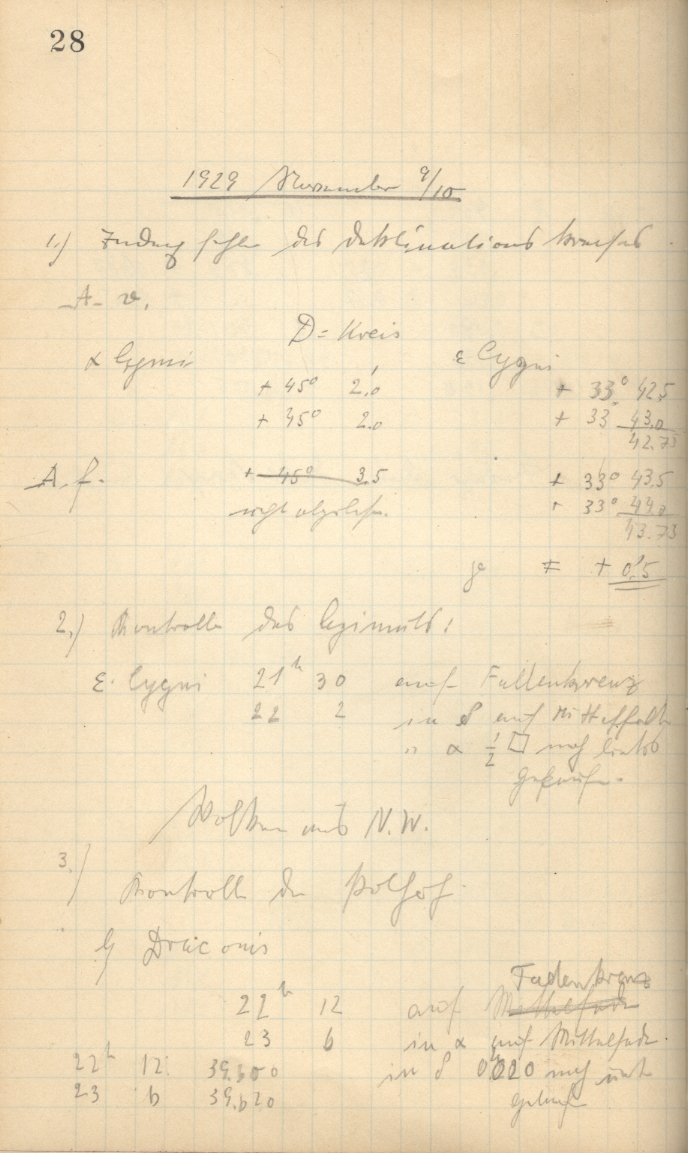 28
1929 November 9/10
1.) Indexfehler des Deklinationskreises.
A. v.
D = Kreis
α Cygni ε Cygni
+ 45° 2.'0 + 33° 42.5
+ 45° 2.0 + 33 43.0
42.75
A. f. + 45° 3.5 + 33° 43.5
nicht abgelesen. + 33° 44.0
43.75
+ 0.'5
2.) Kontrolle des Azimuts:
ε Cygni 21h 30 auf Fadenkreuz
22 2 in δ auf Mittelfade
" α 1/2 □ nach links
gelaufen.
Wolken aus N.W.
3.) Kontrolle der Polhöhe
Draconis
Fadenkreuz
22h 12 auf Mittelfade
23 6 in α auf Mittelfade
22h 12 39.600 in δ 0.020 nach unten
23 6 39.620 gelaufen